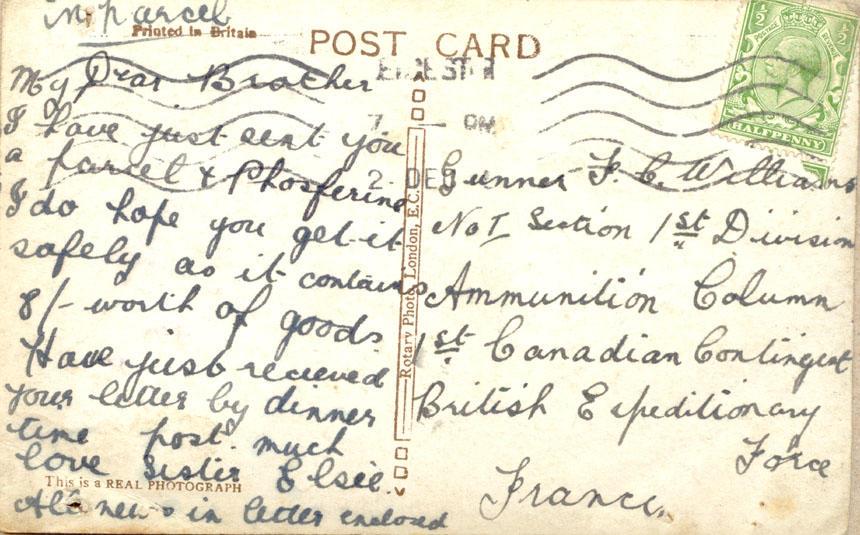 in parcel
Printed in Britain
POST CARD
My Dear Brother
I have just sent you
a parcel & Phosferine
I do hope you get it
safely as it contains
8/- worth of goods
Have just recieved
your letter by dinner
time post. much
love Sister Elsie.
This is a REAL PHOTOGRAPH
All news in letter enclosed
7 PM
2 DE
Rotary Photo, London, E.C.
½ ½
POSTAGE
HALFPENNY
Gunner F. C. Williams
No I Section 1st Division
Ammunition Column
1st Canadian Contingent
British Expeditionary
Force
France.